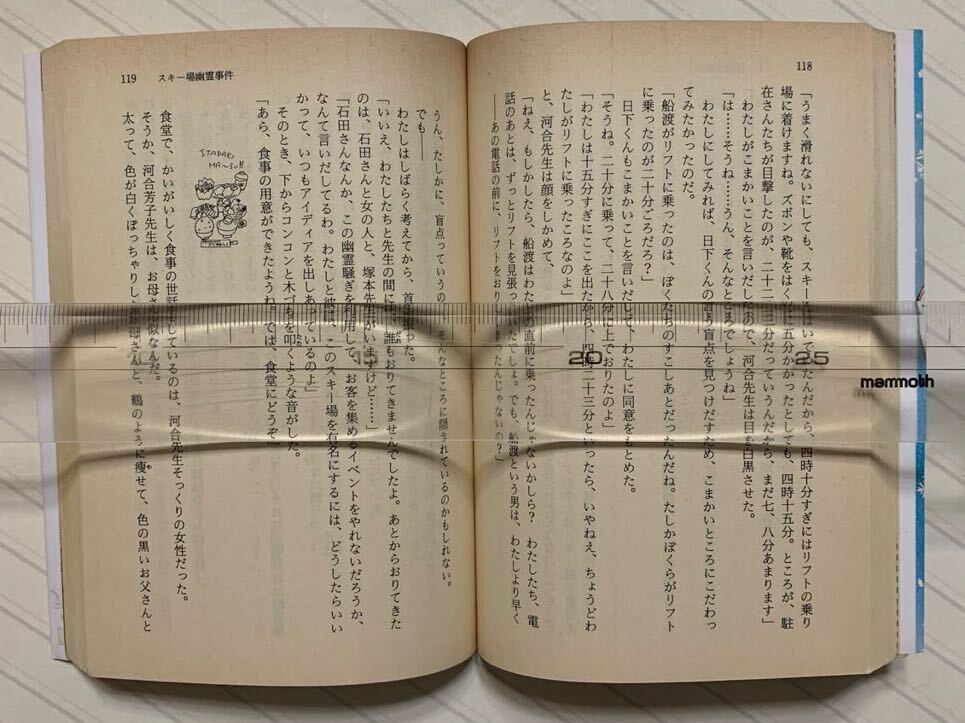 118
「うまく滑れないにしても、スキーをはいて
たんだから、四時十分すぎにはリフトの乗り
場に着けますね。ズボンや靴をはく
に五分かかったとしても、四時十五分。ところが、駐
在さんたちが目撃したのが、二十二、三分だっていうんだから、まだ七、八分あまります」
わたしがこまかいことを言いだしたので、河合先生は目を白黒させた。
「は……そうね……うん、そんなところでしょうね」
わたしにしてみれば、日下くんの言う盲点を見つけだすため、こまかいところにこだわっ
てみたかったのだ。
「船渡がリフトに乗ったのは、ぼくたちのすこしあとだったんだね。たしかぼくらがリフト
に乗ったのが二十分ごろだろ？」
日下くんもこまかいことを言いだして、わたしに同意をもとめた。
「そうね。二十分に乗って、二十八分に上でおりたのよ」
「わたしは十五分すぎにここを出たから、四時二十三分といったら、いやねえ、ちょうどわ
たしがリフトに乗ったころなのよ」
と、河合先生は顔をしかめて、
「ねえ、もしかしたら、船渡はわたしの直前に乗ったんじゃないかしら？　わたしたち、電
話のあとは、ずっとリフトを見張っていたでしょ。でも、船渡という男は、わたしより早く
――あの電話の前に、リフトをおりてしまったんじゃないの？」
119　スキー場幽霊事件
うん、たしかに、盲点っていうのは、そんなところに隠されているのかもしれない。
でも――
わたしはしばらく考えてから、首を振った。
「いいえ、わたしたちと先生の間には、誰もおりてきませんでしたよ。あとからおりてきた
のは、石田さんと女の人と、塚本先生がいますけど……」
「石田さんなんか、この幽霊騒ぎを利用して、お客を集めるイベントをやれないだろうか、
なんて言いだしてるわ。わたしと彼は、このスキー場を有名にするには、どうしたらいい
かって、いつもアイディアを出しあっているのよ」
そのとき、下からコンコンと木づちを叩くような音がした。
「あら、食事の用意ができたようね。では、食堂にどうぞ」
ITADAKI
MA~SU!!
食堂で、かいがいしく食事の世話をしているのは、河合先生そっくりの女性だった。
そうか、河合芳子先生は、お母さん似なんだ。
太って、色が白くぽっちゃりし
お母さんと、鶴のように痩せて、色の黒いお父さんと
20
25
mammoth